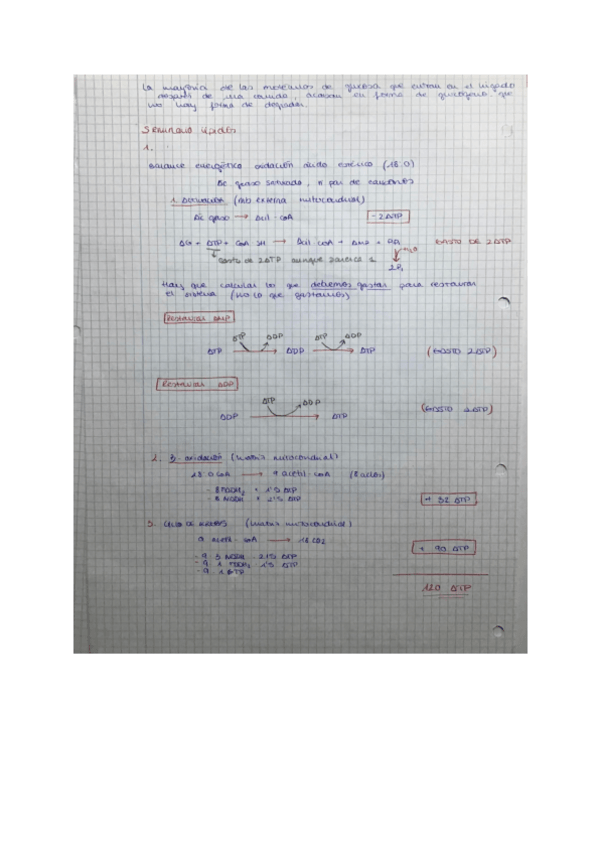 La mayoría de las moléculas de glucosa que entran en el hígado
después de una comida, acaban en forma de glucógeno que
no hay forma de degradar.
Seminario lípidos
1.
Balance energético oxidación ácido esteárico (18:0)
Ac graso saturado, n par de carbonos
1. Activación (mb externa mitocondrial)
Ac graso → Acil-CoA
-2ATP
AG + ATP + CoA SH → Acil-CoA + AMP + PPi
H2O
GASTO DE 2ATP
Gasto de 2ATP aunque parezca 1
2Pi
Hay que calcular lo que debemos gastar para restaurar
el sistema (no lo que gastamos)
Restaurar AMP
ATP ADP ATP ADP
→ ADP → ATP
(GASTO 2ATP)
Restaurar ADP
ATP ADP
ADP → ATP
2. β-oxidación (matriz mitocondrial)
18:0 CoA → 9 acetil-CoA (8 ciclos)
- 8 FADH2 × 1'5 ATP
- 8 NADH × 2'5 ATP
+ 32 ATP
3. Ciclo de Krebs (matriz mitocondrial)
9 acetil-CoA → 18 CO2
+ 90 ATP
- 9 · 3 NADH · 2'5 ATP
- 9 · 1 FADH2 · 1'5 ATP
- 9 · 1 GTP
120 ATP